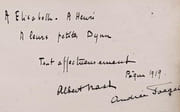 A Elisabeth. A Henri
A leurs petits Dynn
Tout affectueusement
Pâques 1919.
Albert
Andrée